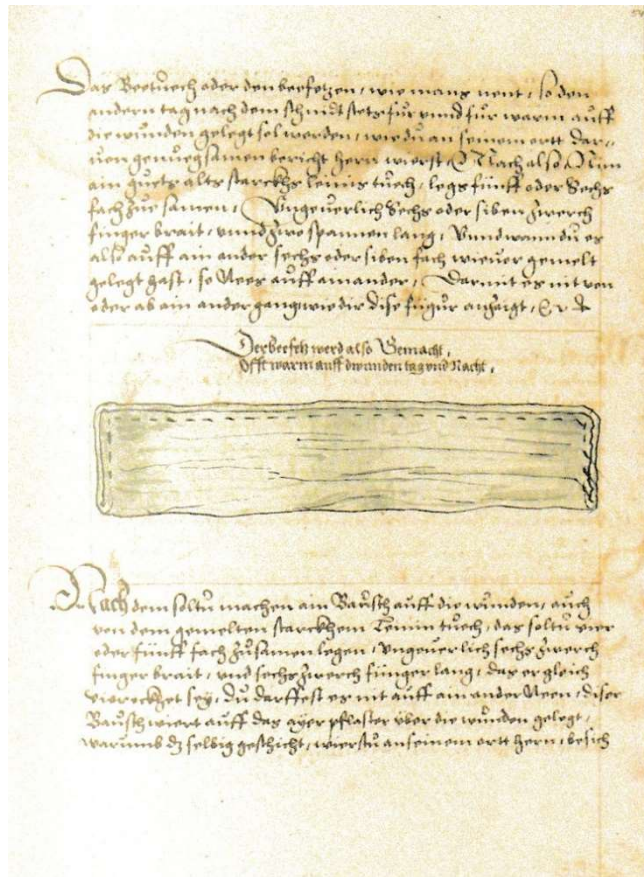 Das Beetuech oder den beefetzen, wie mans nent, so den
andern tag nach dem schnidt stets für vnnd für warm auff
die wunden gelegt sol werden, wie du an seinem ortt dar,,
uon genuegsamen bericht hern wierst Nach also, Nim
ain guets alts starckhs leinis tuech, legs fünff oder Sechs
fach zue samen, Vngeuerlich Sechs oder siben zwerch
finger brait, vnnd zwo spannen lang, Vnnd wann du es
also auff ain ander sechs oder siben fach wie uor gemelt
gelegt hast, so Nees auff ainander, Darmit es nit von
oder ab ain ander gang wie dir dise figur anzeigt,
Der beefetz werd also Gemacht,
Offt warm auff d wunden tag vnd Nacht,
Nach dem soltu machen ain Bausch auff die wunden, auch
von dem gemelten starckhem Leinin tuech, das soltu vier
oder fünff fach zusamen legen, vngeuerlich sechs zwerch
finger brait, vnd sechs zwerch fünger lang, das er gleich
viereckhet sey, du darffest es nit auff ain ander Neen, diser
Bausch wiert auff das ayer pflaster yber die wunden gelegt,
warumb dz selbig geschicht, wierstu an seinem ortt hern, besich